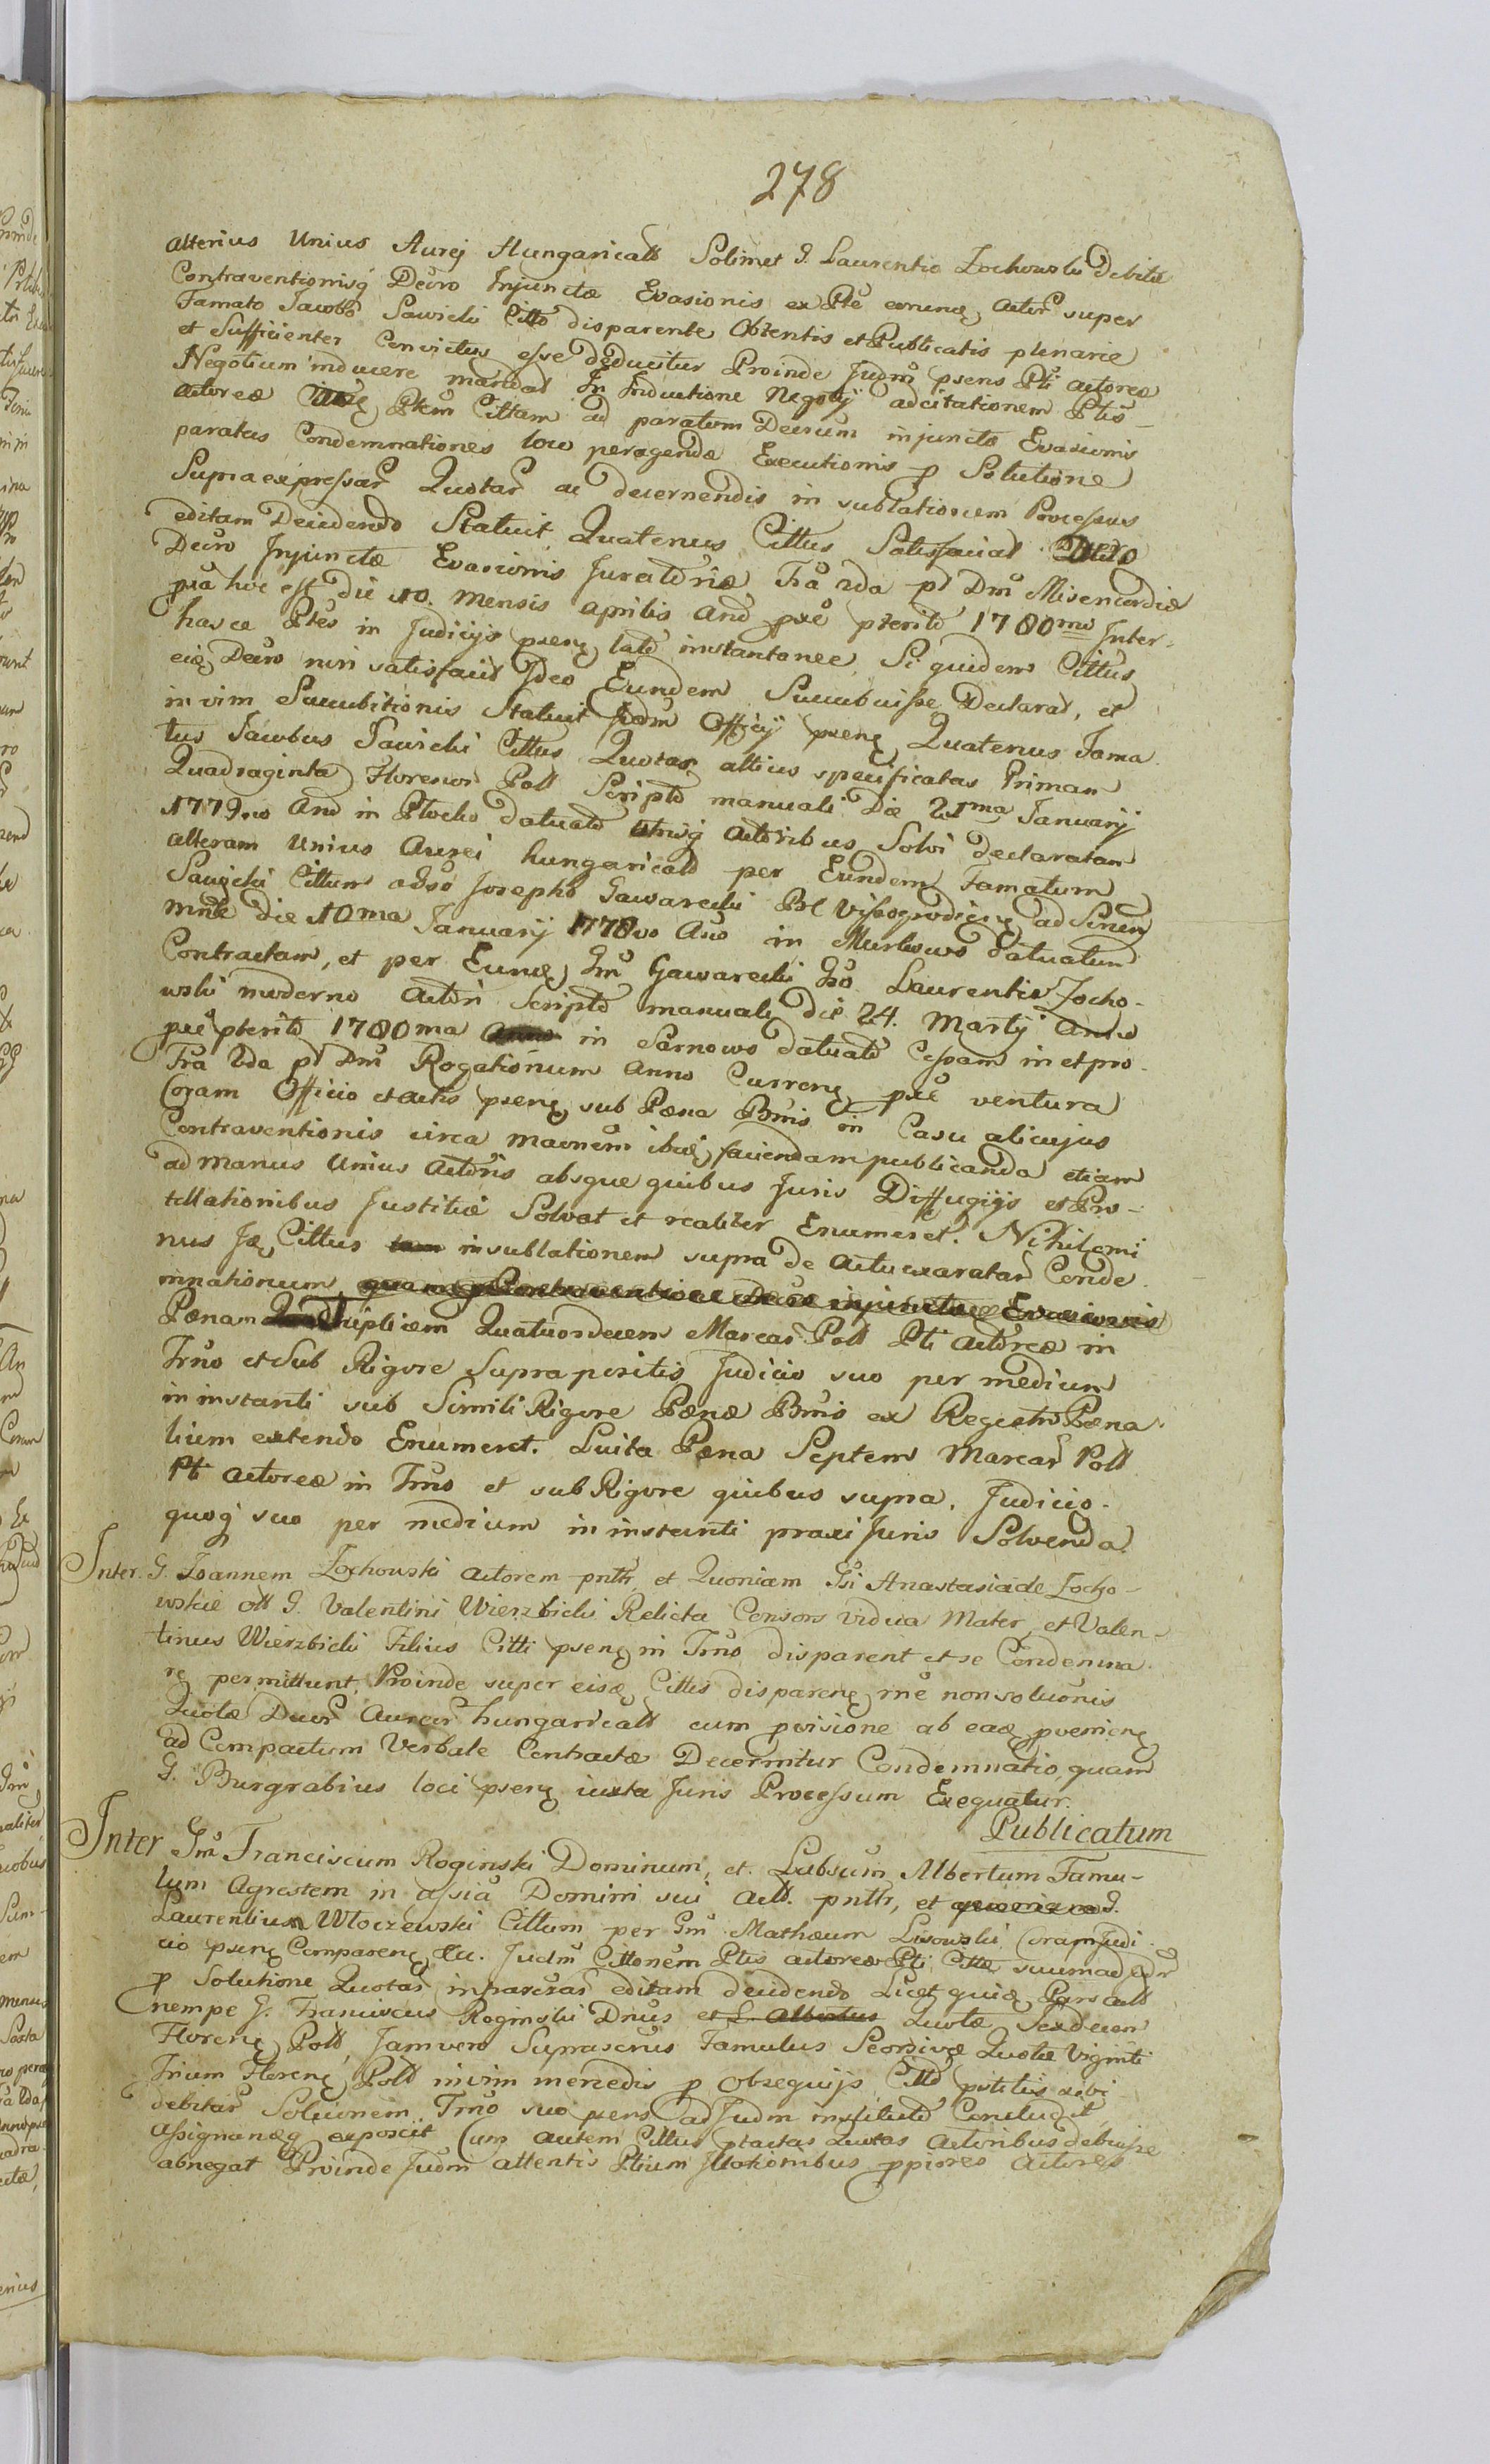 278
alterius Unius Aurej Hungaricals Solimet G. Laurentio Zochowski debitæ
Contraventionisq Decro Injunctæ Evasionis ex Pte eorund actor super
Famato Jacobo Sawicki Citto disparente Obtentis et Publicatis plenarie
et Sufficienter Convictus esse deducitur Proinde Judm psens Pti actoreæ
Negotium inducere mandat In Inductione Negotij adcitationem Ptis
actoreæ Ptem Cittam ad paratam Decrum injunctæ Evasionis
paratas Condemnationes loco peragendæ Executionis p Solutione
Supraexpressar Quotar ac decernendis in sublationem Processus
editam Decidendo Statuit Quatenus Cittus Satisfaciat
Decro Injunctæ Evasionis Juratoriæ Fra 2da pt Dm Misericordiæ
pra hoc est die 10. mensis aprilis Ano pxe pterito 1780mo Inter
hasce Ptes in Judicijs psens lato instantanee Si quidem Cittus
eid Decro non satisfacit Ideo Eundem Succubuisse Declarat, et
in vim Succubitionis Statuit Judm Officij psens Quatenus Fama
tus Jacobus Sawicki Cittus Quotas altius specificatas Primam
Quadraginta Florenor Poll Scripto manuali Die 21ma Januarij
1779no Ano in Plocko datuato utrisq actoribus Solvi declaratam
alteram Unius Aurei hungaricals per Eundem Famatum
Sawicki Cittum adso Josepho Gawarecki Bl Vissogrodiens ad Scrium
mnle die 10ma Januarij 1778vo Ano in Murkowo datuatum
Contractam, et per Eund Gm Gawarecki Gso Laurentio Zocho-
wski moderno Actori Scripto manuali die 24. Martij Anno
pxe pterito 1780ma in Sarnowo datuato Cessam in et pro
Fra 2da pt Dm Rogationum Anno Currens pxe ventura
Coram Officio et actis psens sub Pæna Bnis in Casu alicujus
Contraventionis circa maonem ibid faciendam publicanda etiam
ad manus Unius Actoris absque quibus Juris Diffugijs et Pro-
tellationibus Justitiæ Solvat et realiter Enumeret. Nihilomi
nus Id Cittus in sublationem supra de actu exaratar Conde
mnationum quam p Contraventione Decro injunctæ Evasionis
Pænam Triplicem Quatuordecem Marcar Poll Pti Actoreæ in
Trno et Sub Rigore Supra peritis Judicio suo per medium
in instanti sub Simili Rigore Pænæ Bnis ex Regestro Pæna
lium extendo Enumeret. Luita Pæna Septem Marcar Poll
Pti Actoreæ in Trno et sub Rigore quibus supra, Judicio
quoq suo per medium in instanti praxi Juris Solvenda
Inter G. Joannem Zochowski actorem pntr et Quoniam Gsi Anastasia de Zocho-
wskie olt G. Valentini Wierzbicki Relicta Consors vidua Mater, et Valen-
tinus Wierzbicki Filius Citti psens in Trno disparent et se Condemna
re permittunt, Proinde super eisd Cittis disparens rne non soluonis
Quotæ Duor Aureor hungaricals cum pvisione ab ead pveniens
ad Compactum Verbale Contractæ Decernitur Condemnatio, quam
G. Burgrabius loci psens iuxta Juris Processum Exequatur.
Publicatum
Inter Gm Franciscum Roginski Dominum, et Labsum Albertum Famu-
lum Agrestem in assia Domini sui Acto. pntr, et quoniam G.
Laurentium Wloczewski Cittum per Gm Mathæum Lisowski Coram Judi
cio psens Comparens &c. Judm Cittonem Ptis actoreæ Pti Cittæ suum ad
p Solutione Quotar infrascrar editam decidendo Licet quid Pars act
nempe G. Franciscus Roginski Dnus et L. Albertus Quotæ Sexdecem
Florens Poll, Jam vero Suprascrus Famulus Seorsive Quotæ Viginti
Trium Florens Poll in vim mercedis p Obsequijs Citto pstitis sibi
debitar Soluonem Trno suo psens ad Judm instituto Concludit
Assignandq exposcit Cum autem Cittus ptactas Quotas Actoribus debuisse
abnegat Proinde Judm attentis Ptium Illationibus ppiores Actores